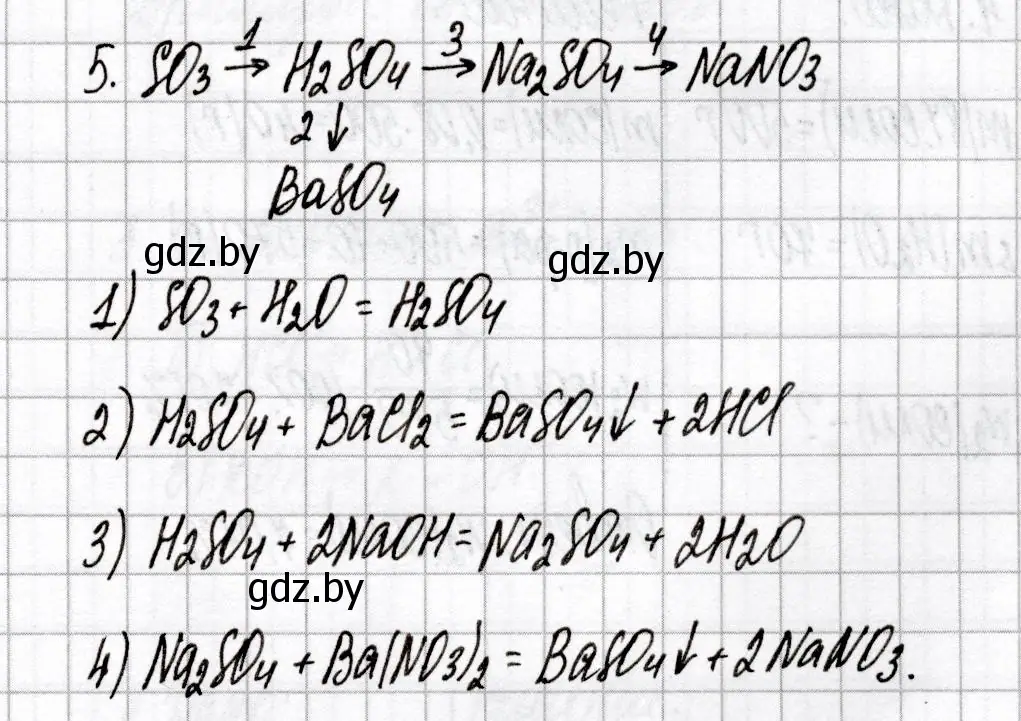 5. SO3 1→ H2SO4 3→ Na2SO4 4→ NaNO3
2↓
BaSO4
gdz.by
gdz.by
1) SO3 + H2O = H2SO4
2) H2SO4 + BaCl2 = BaSO4↓ + 2HCl
3) H2SO4 + 2NaOH = Na2SO4 + 2H2O
gdz.by
4) Na2SO4 + Ba(NO3)2 = BaSO4↓ + 2NaNO3.